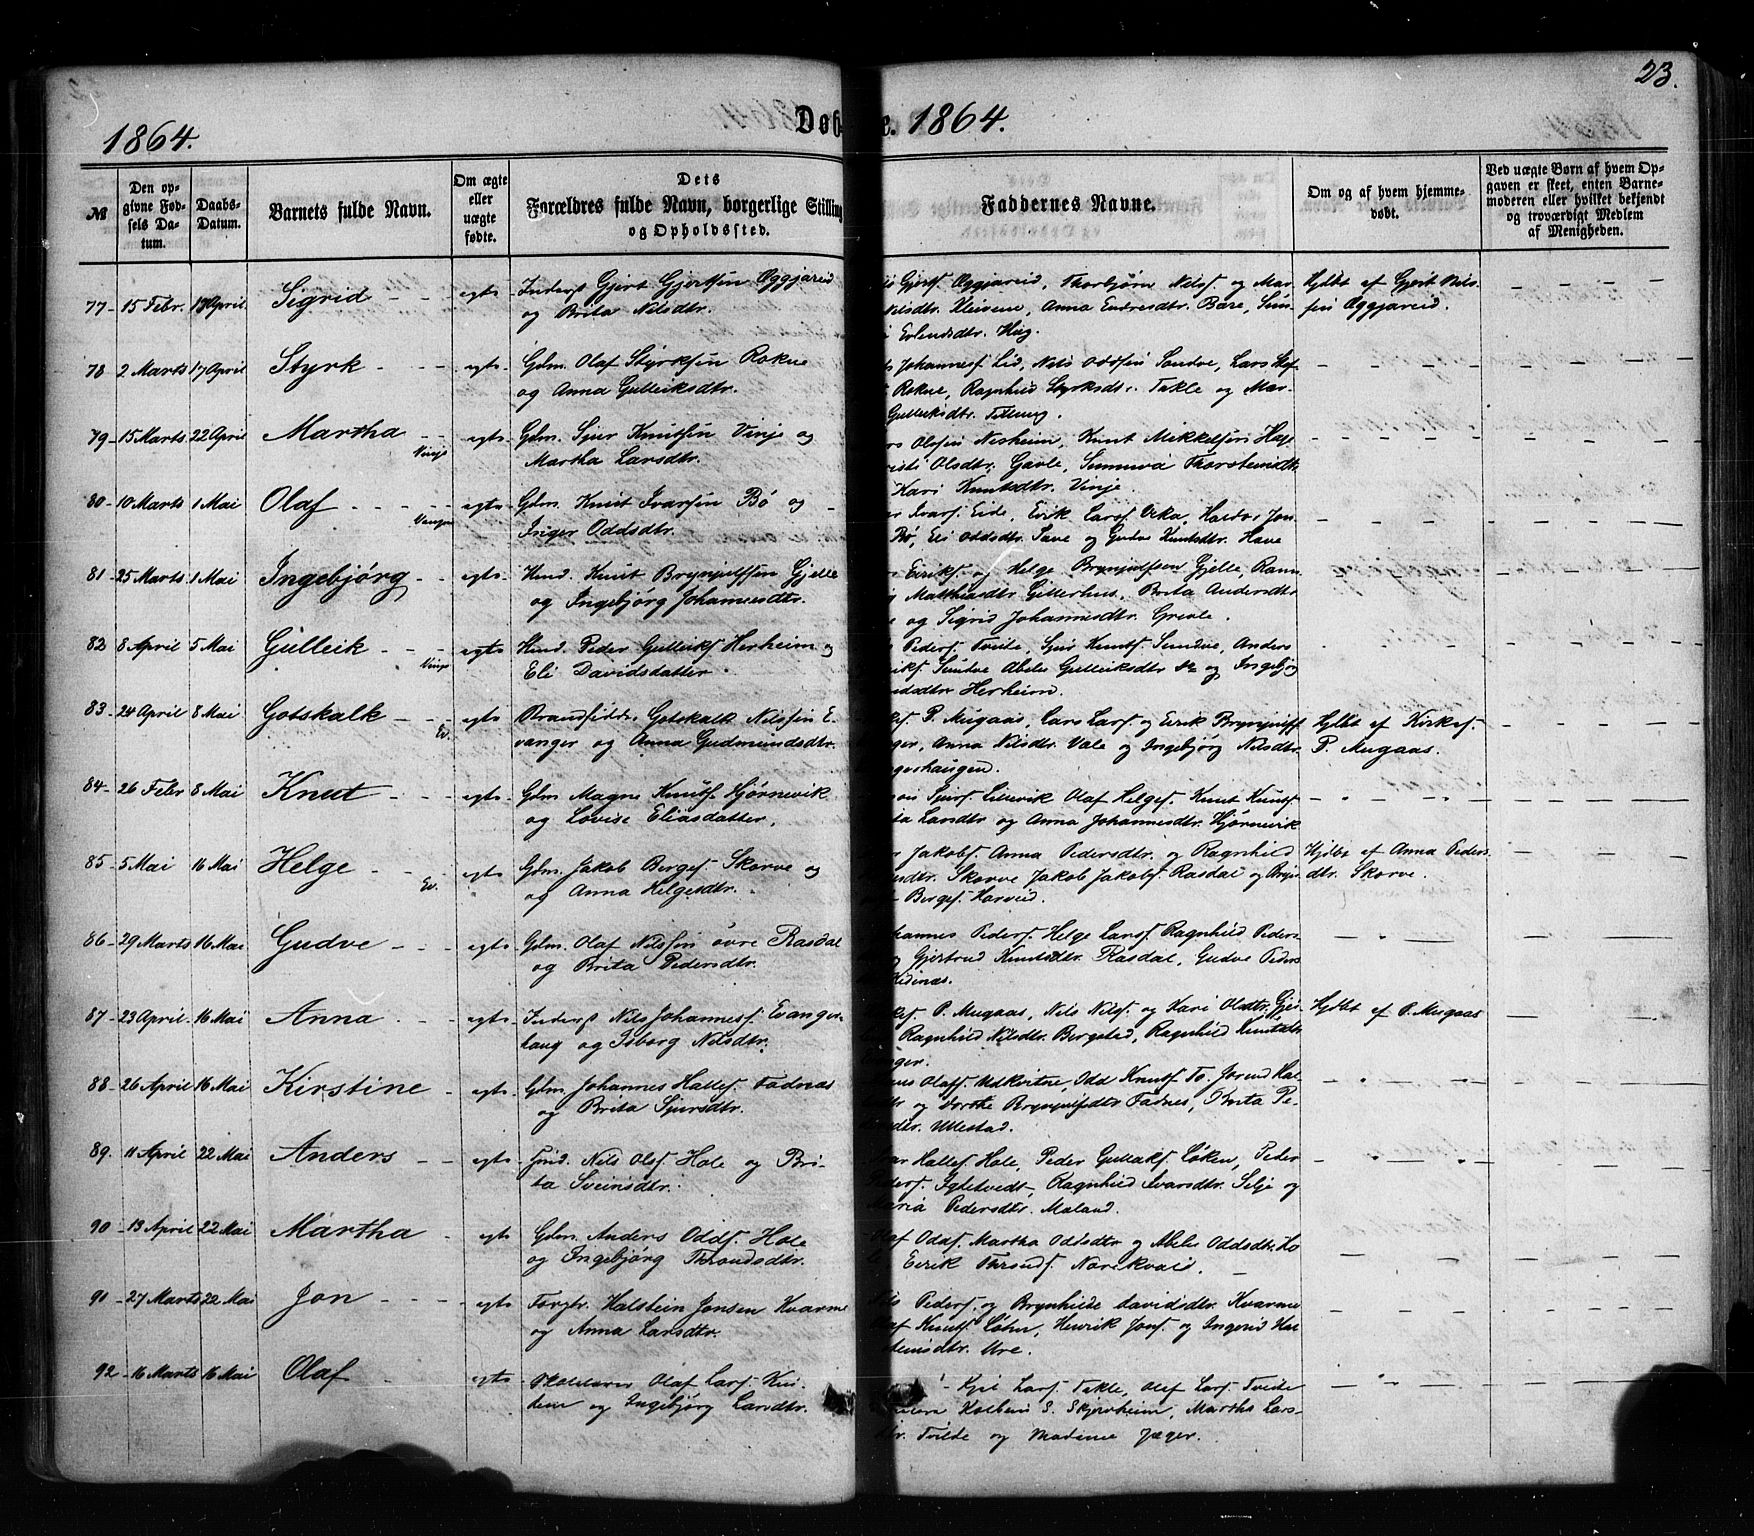 23.
1864.
Døb
e. 1864.
№
Den op-
givne Fød-
sels Da-
tum.
Daabs-
Datum.
Barnets fulde Navn.
Om ægte
eller
uægte
fødte.
Dets
Forældres fulde Navn, borgerlige Stilling
og Opholdssted.
Faddernes Navne.
Om og af hvem hjemme-
døbt.
Ved uægte Børn af hvem Op-
gaven er skeet, enten Barne-
moderen eller hvilket bekjendt
og troværdigt Medlem
af Menigheden.
77 - 15 Febr. 17 April Sigrid - - egte - Inderst Gjert Gjertsen Æggjareid
og Brita Nilsdtr.
Gjertf. Æggjareid, Thorbjørn Nilsf og Mar-
Nilsdtr. Kleivene, Anna Endresdtr. Bære,
Erlendsdtr. Haug.
Hjdbt af Gjert Nils-
sen Æggjareid.
78 - 2 Marts 17 April Styrk - - - egte - Gdm. Olaf Styrksen Rokne
og Anna Gulleiksdtr.
Johannesf Lid, Nils Oddsen Sundve, Lars
Rokne, Ragnhild Styrksdtr. Takle og Mar-
Gulleiksdtr. Tillung.
79 - 15 Marts 22 April Martha - - Vinje egte - Gdm. Sjur Knutsen Vinje og
Martha Larsdtr.
Olsen Nesheim, Knut Mikkelsen
Olsdtr. Gavle, Sunniva Thorsteinsdtr.
Kari Knutsdtr. Vinje
80 - 10 Marts 1 Mai Olaf - - - Vangen egte - Gdm. Knut Ivarsen Bø og
Inger Oddsdtr.
Ivarf Eide, Eirik Larsf Urka, Haldor Jon-
Bø, Eli Oddsdtr. Saue og Gudve Knutsdtr. Haue
81 - 25 Marts 1 Mai Ingebjørg - - egte - Huusd. Knut Brynjulfsen Gjelle
og Ingebjørg Johannesdtr.
Eirikf. og Helge Brynjulfsen Gjelle, Rann-
Mathiasdtr. Gitlerhus, Brita Andersdtr
og Sigrid Johannesdtr.
82 8 April 5 Mai Gulleik - - - Vinje egte Huusd. Peder Gulleikf Herheim og
Eli Davidsdatter.
Pedersf. Tveite, Sjur Knutf. Sundve, Anders
eikf Sundve Abelu Gulleiksdtr do og Ingebjørg
idsdtr Herheim.
83. - 24 April 8 Mai Gotskalk - - - Ev. egte - Strandsidder Gotskalk Nilssen E-
vanger og Anna Gudmundsdtr.
P. Mugaas, Lars Larsf og Eirik Brynjulff
ger, Anna Nilsdtr. Vale og Ingebjørg Nilsdtr.
gershaugen.
Hjdbt af Kirkes.
P. Mugaas.
84 - 26 Febr 8 Mai Knut - - - egte - Gdm Magne Knutsf. Hjørnevik
og Lovise Eliasdatter.
Sjurf. Lillevik Olaf Helgef. Knut Knutsf
Larsdtr og Anna Johannesdtr. Hjørnevik
85 - 5 Mai 16 Mai Helge - - - Ev. egte - Gdm. Jakob Bergef. Skorve og
og Anna Helgesdtr.
Jakobf. Anna Pedersdtr. og Ragnhild
Skorve Jakob Jakobf. Rasdal og
Bergef. Horveid.
Hjdbt af Anna Peders-
dtr. Skorve.
86 - 29 Marts 16 Mai Gudve - - - egte - Gdm. Olaf Nilssen øvre Rasdal
og Brita Pedersdtr.
hannes Pedersf. Helge Larsf. Ragnhild Peders-
Gjertrud Knutsdtr. Rasdal, Gudve Peders
87 - 23 April 16 Mai Anna - - egte - Inderst Nils Johannesf. Evanger-
haug og Isborg Nilsdtr.
P. Mugaas, Nils Nilsf. og Kari Olsdtr.
Ragnhild Nilsdtr. Bergstad, Ragnhild Knutsdtr
ger.
Hjdbt af P. Mugaas
88 - 26 April 16 Mai Kirstine - egte - Gdm Johannes Hallef. Fadnes
og Brita Sjursdtr.
Olafs. Udkvitne, Odd Knutsf. To, Jorund Hal-
og Dorthe Brynjulfsdtr Fadnes, Brita Pe-
dtr. Ullestad.
89. - 11 April 22 Mai Anders - - egte - Huusd. Nils Olsf Hole og Bri-
ta Sveinsdtr.
Hallef. Hole, Peder Gulleikf. Løken, Peder
Pedersf. Igletvedt, Ragnhild Ivarsdtr. Selje og
Maria Pedersdtr. Moland.
90 - 13 April 22 Mai Martha - egte Gdm. Anders Oddsf. Hole
og Ingebjørg Throndsdtr.
Olaf Odsf. Martha Odsdtr og Abelu Oddsdtr. Ho-
le Eirik Throndsf. Norekvale.
91 - 27 Marts 22 Mai Jon - - - egte - Forgtr. Halstein Jonsen Kvarme
og Anna Larsdtr.
Nils Pedersf. og Brynhilde Davidsdtr. Kvarme
Olaf Knutsf. Løhn, Henrik Jonsf. og Ingerid Hal-
steinsdtr. Ure.
92 - 16 Marts 16 Mai Olaf - - egte - Skolelærer Olaf Larsf. Kin-
dem og Ingebjørg Larsdtr.
Kjel Larsf. Takle, Olaf Larsf. Tvilde
Kolbein S. Skjerveheim, Martha Lars-
dtr. Tvilde og Madame Jæger.